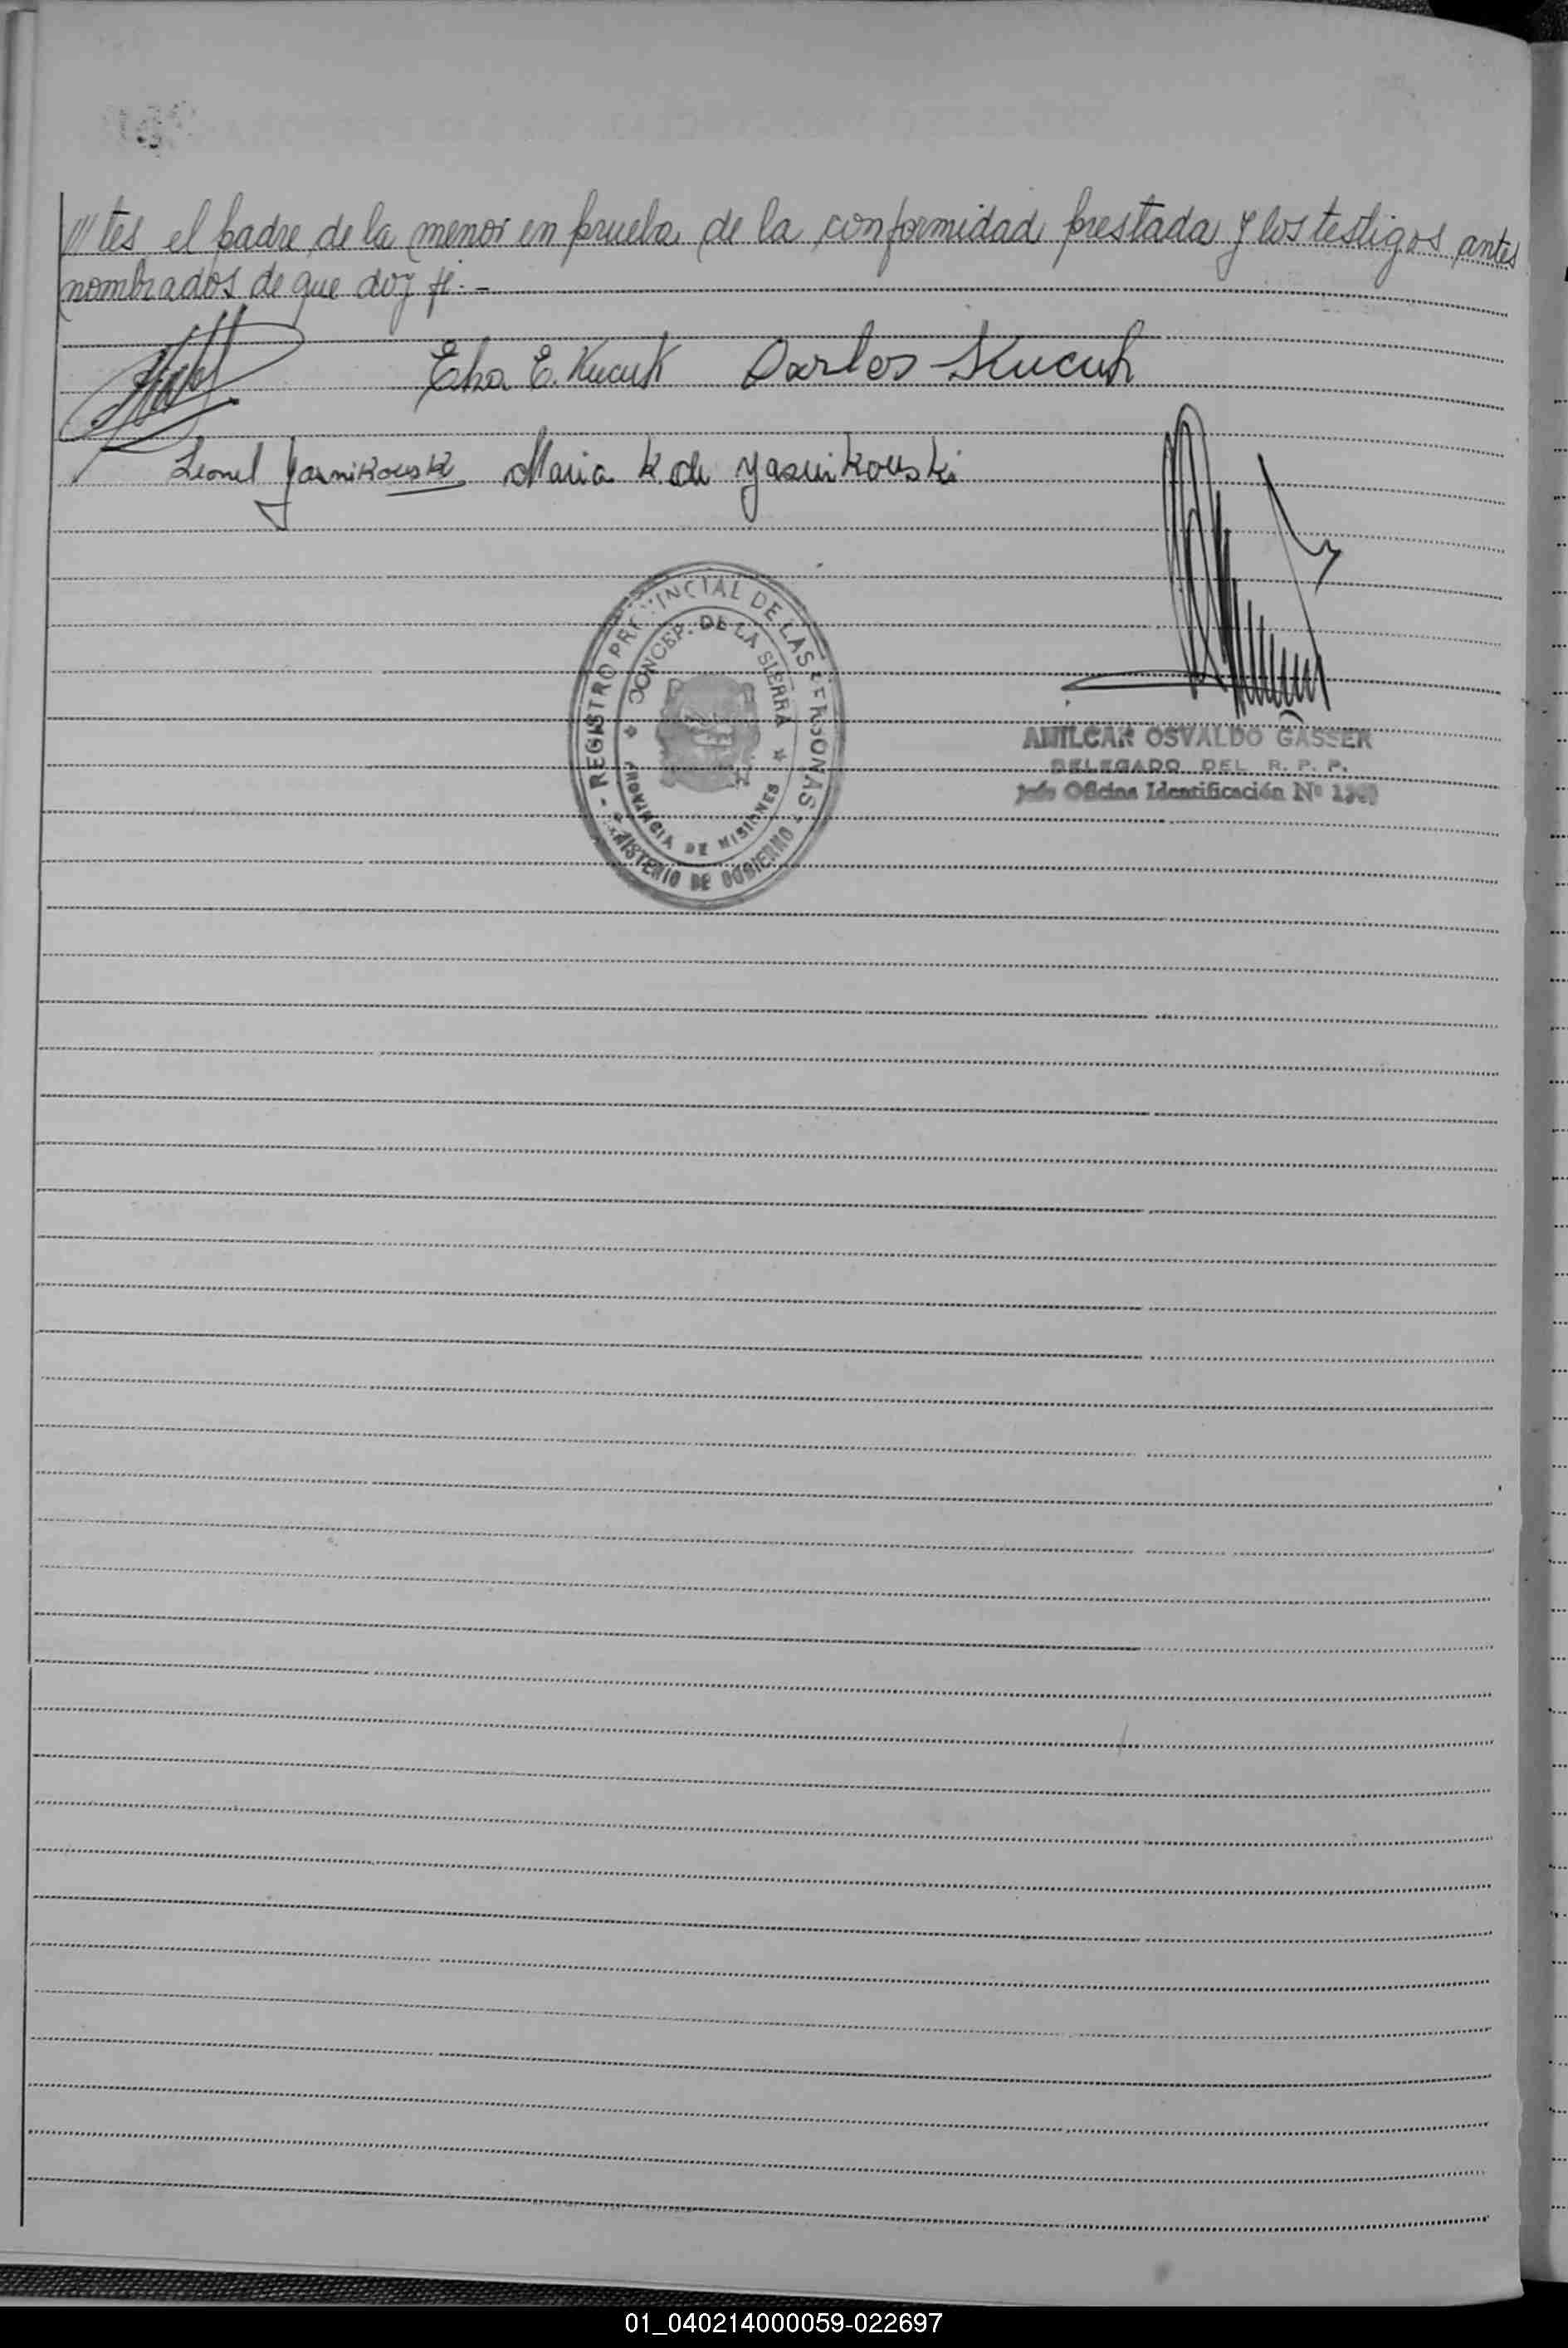 ///tes el padre de la menor en prueba de la conformidad prestada y los testigos antes
nombrados de que doy fé. -
E. Kucuk Carlos Kucuk
Leonel Yasnikouski Maria K de Yasnikouski
- REGISTRO PROVINCIAL DE LAS PERSONAS -
MINISTERIO DE GOBIERNO
CONCEP. DE LA SIERRA
PROVINCIA DE MISIONES
AMILCAR OSVALDO GASSER
DELEGADO DEL R. P. P.
Jefe Oficina Identificación Nº
01_040214000059-022697